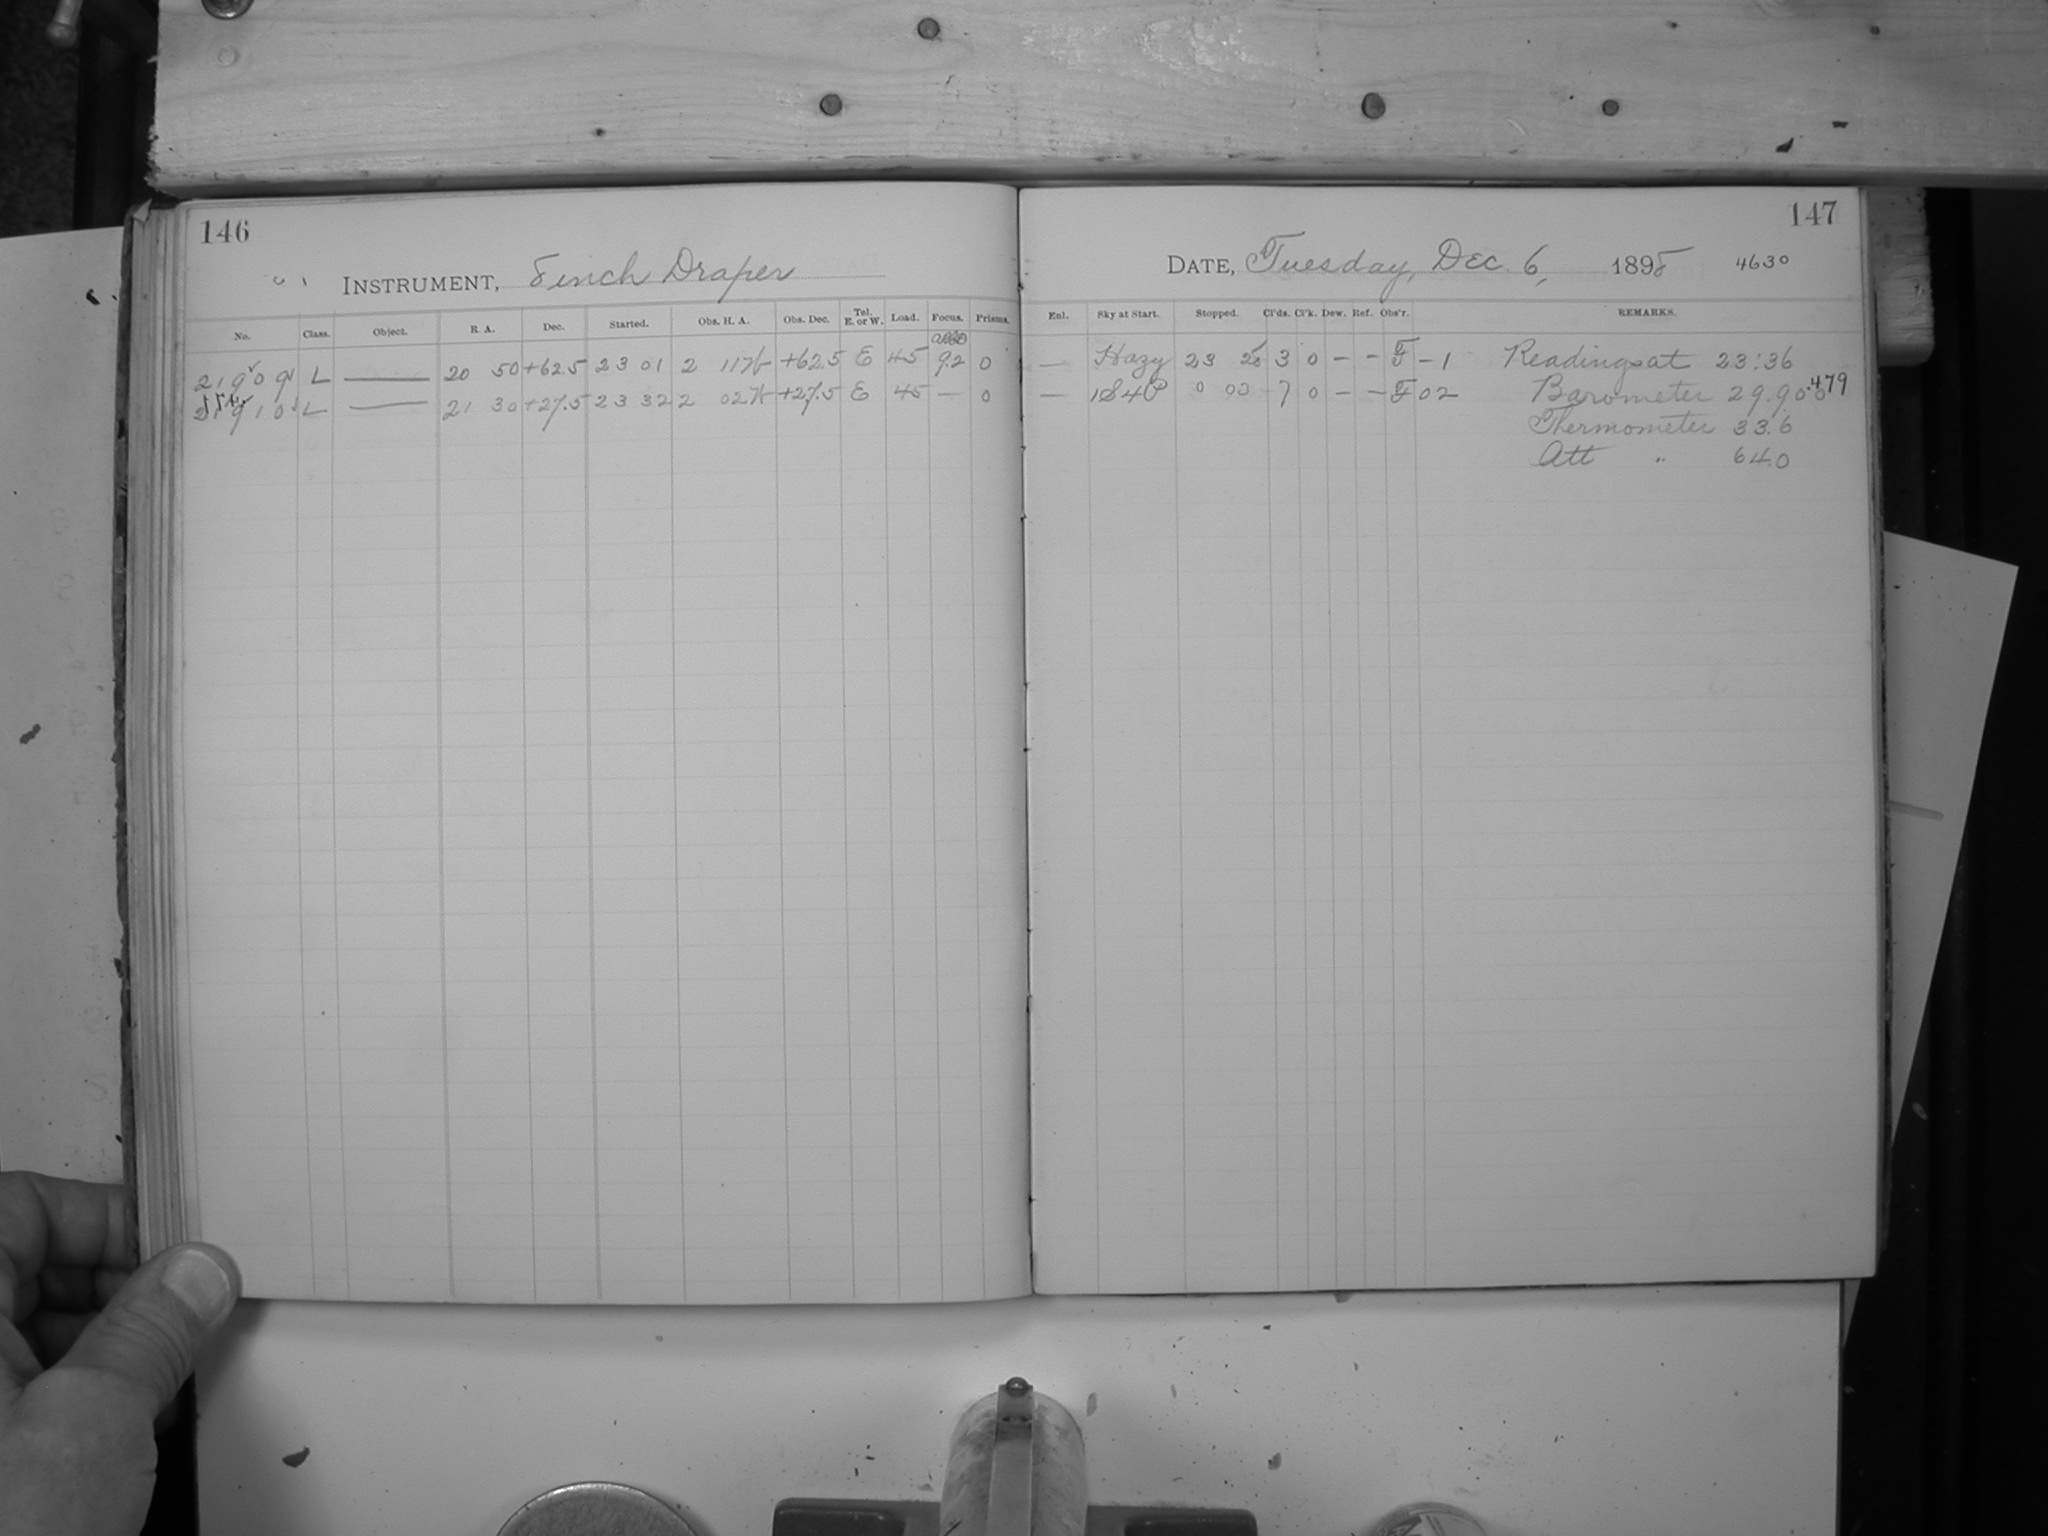 146
INSTRUMENT, 8 inch Draper
No. Class. Object. R. A. Dec. Started. Obs. H. A. Obs. Dec. Tel. E. or W. Load. Focus. Prisms.
21909 L — 20 50 +62.5 23 01 2 11 W +62.5 E 45 9.2 0
21910 L — 21 30 +27.5 23 32 2 02 W +27.5 E 45 — 0
147
DATE, Tuesday, Dec. 6, 1898 4630
Enl. Sky at Start. Stopped. Cl'ds. Cl'k. Dew. Ref. Obs'r. REMARKS.
— Hazy 23 3 0 – – F – 1 Readings at 23:36
— 0 03 7 0 – – F 02 Barometer 29.900 .479
Thermometer 33.6
Att " 64.0